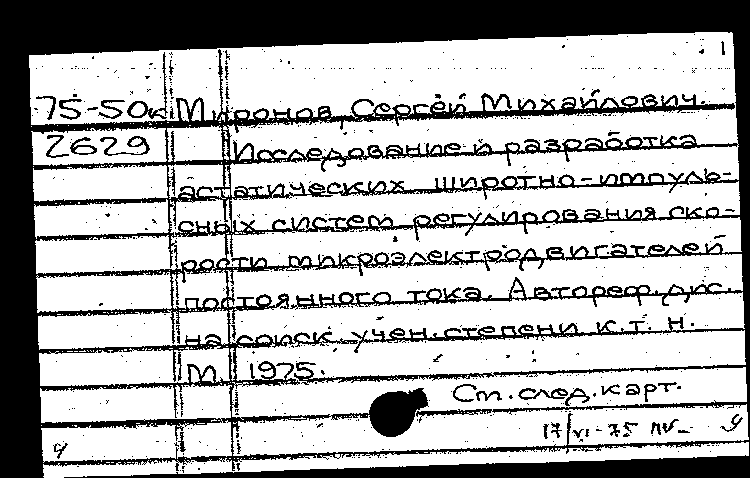 1
75-50к Миронов, Сергей Михайлович.
2629 Исследование и разработка
астатических широтно-импуль-
сных систем регулирования ско-
рости микроэлектродвигателей
постоянного тока. Автореф. дис.
на соиск. учен. степени к. т. н.
М. 1975.
Ст. след. карт.
17/VI-75